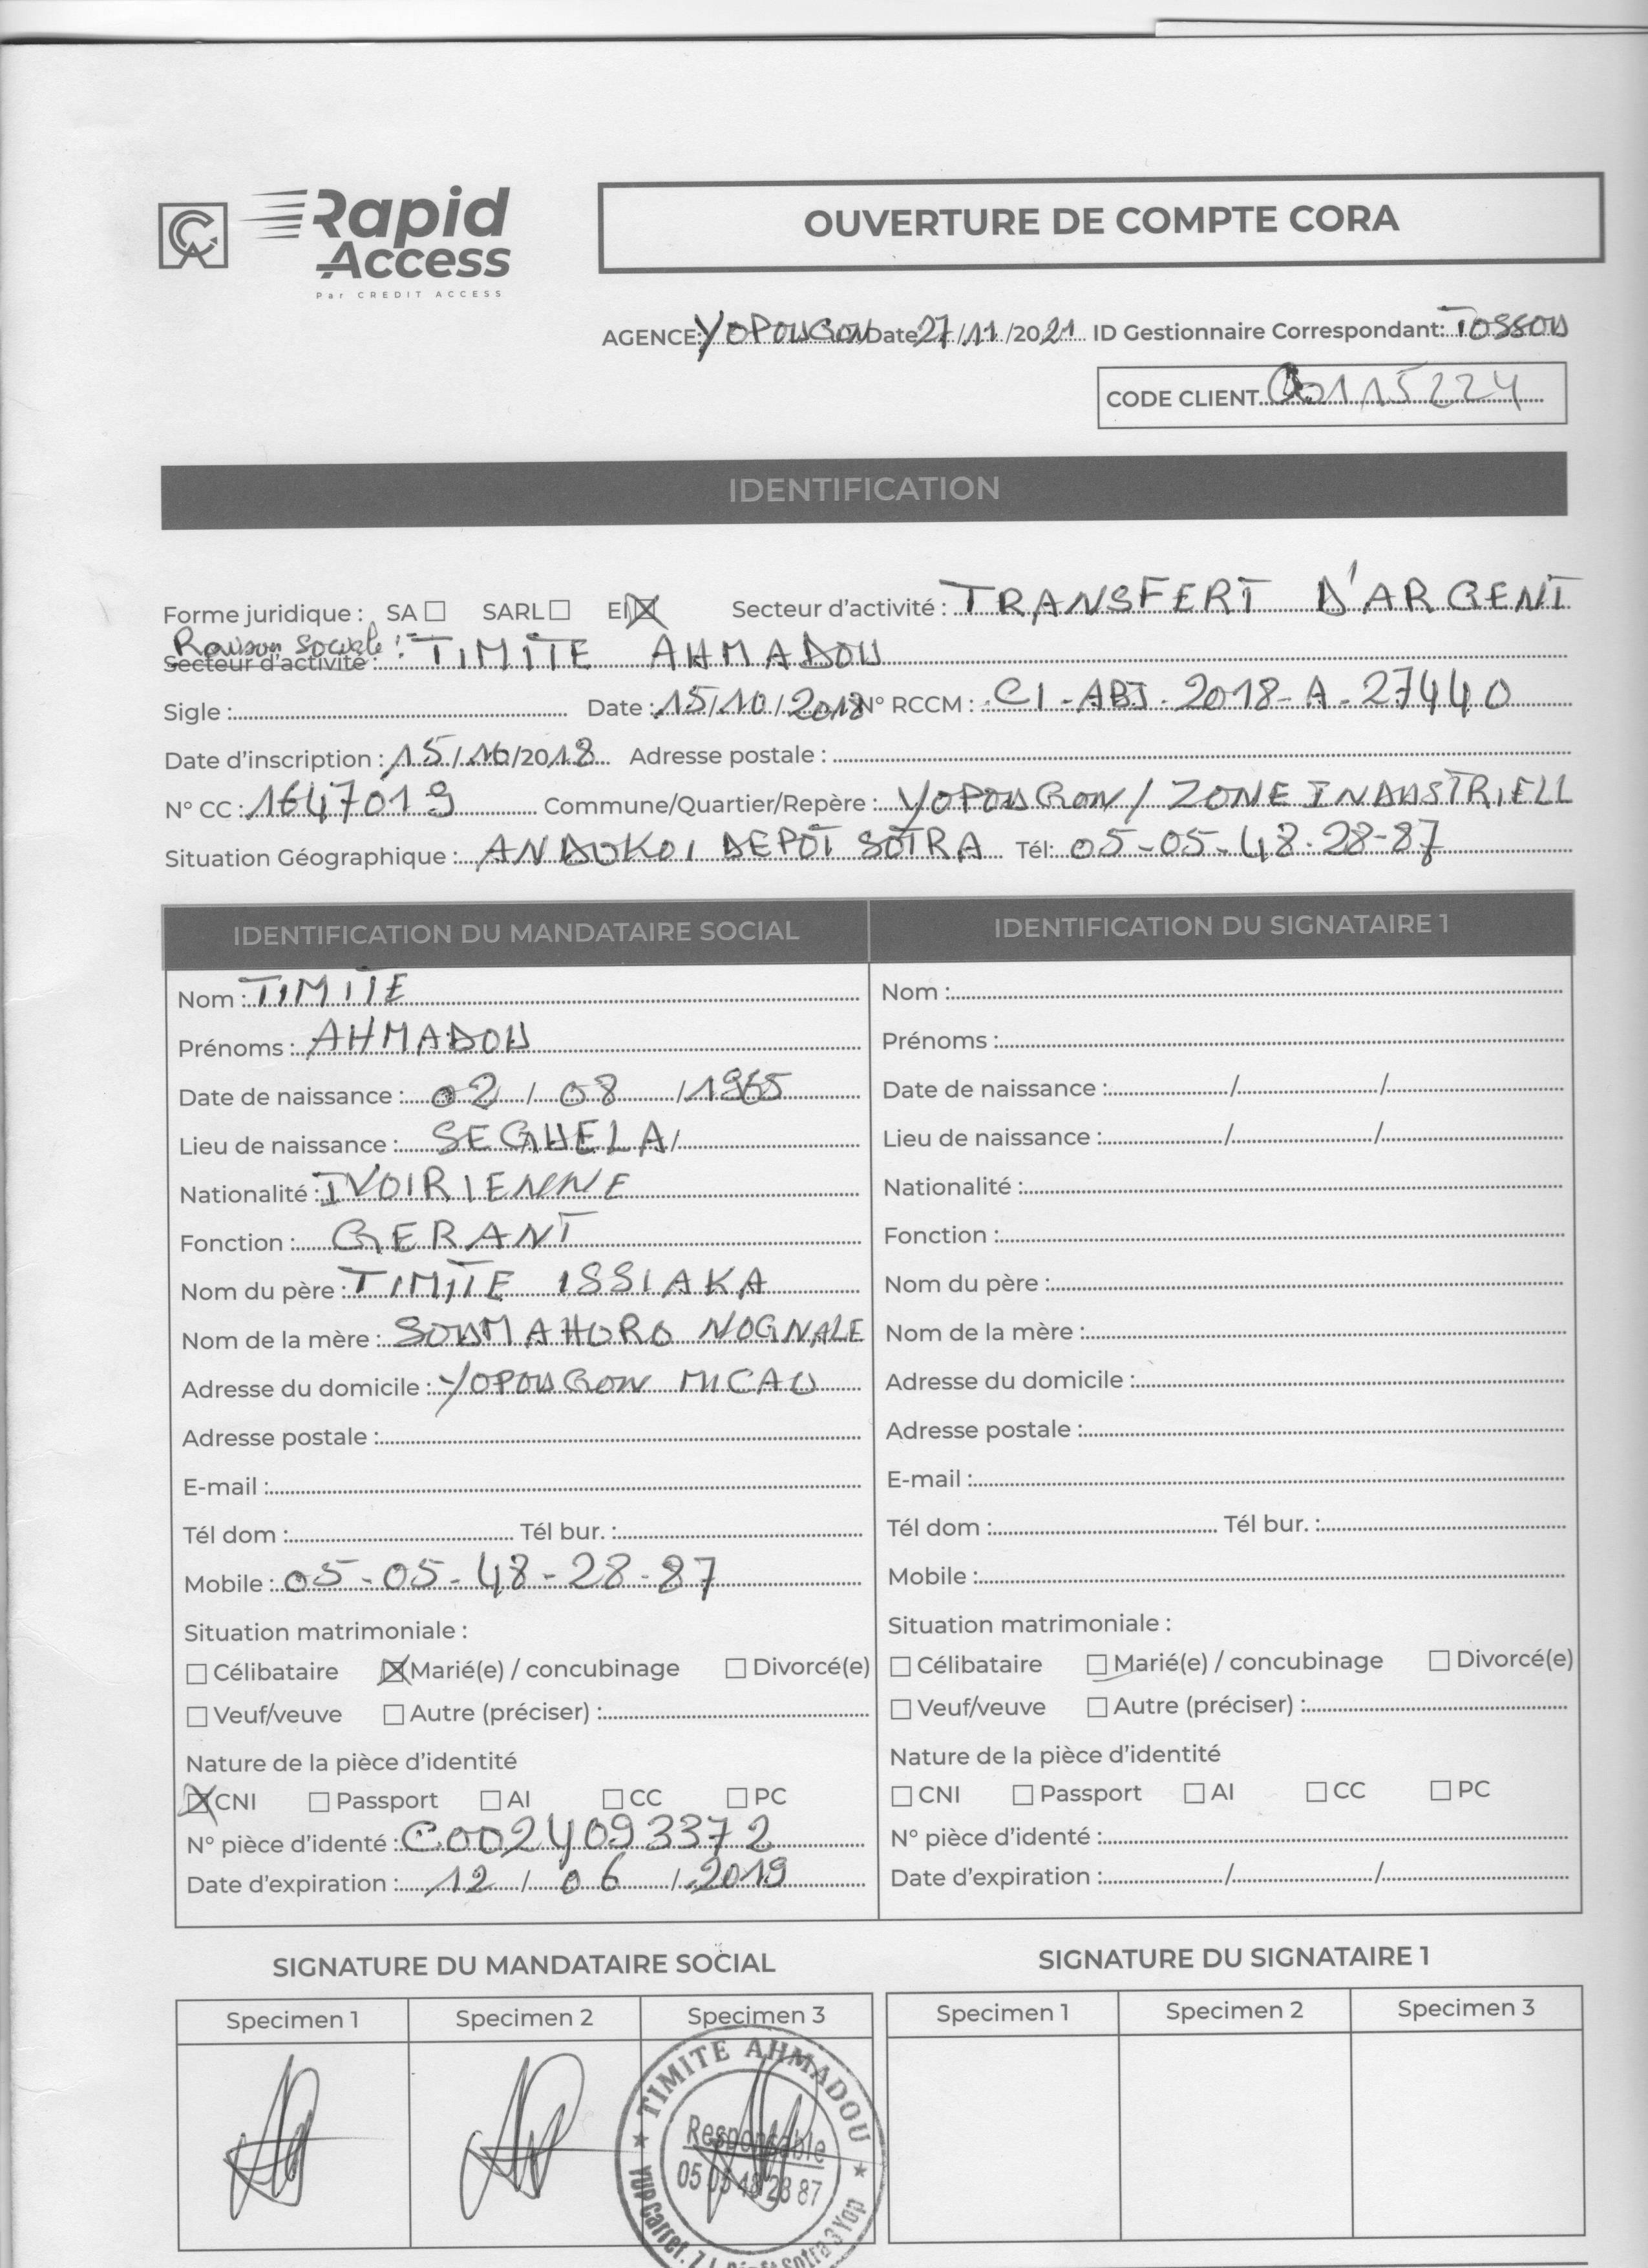 Rapid
Access
Par CREDIT ACCESS
OUVERTURE DE COMPTE CORA
AGENCE: YOPOUGON Date 27/11/2021 ID Gestionnaire Correspondant: TOSSOU
CODE CLIENT 00115224
IDENTIFICATION
Forme juridique : SA ☐ SARL ☐ EI ☒ Secteur d'activité : TRANSFERT D'ARGENT
Raison sociale :
Secteur d'activité : TIMITE AHMADOU
Sigle : Date : 15/10/2018 N° RCCM : CI-ABJ-2018-A-27440
Date d'inscription : 15/10/2018 Adresse postale :
N° CC : 1647019 Commune/Quartier/Repère : YOPOUGON / ZONE INDUSTRIELL
Situation Géographique : ANDOKOI DEPOT SOTRA Tél: 05-05-48-28-87
IDENTIFICATION DU MANDATAIRE SOCIAL
Nom : TIMITE
Prénoms : AHMADOU
Date de naissance : 02 / 08 / 1965
Lieu de naissance : SEGUELA /
Nationalité : IVOIRIENNE
Fonction : GERANT
Nom du père : TIMITE ISSIAKA
Nom de la mère : SOUMAHORO NOGNALE
Adresse du domicile : YOPOUGON MICAO
Adresse postale :
E-mail :
Tél dom : Tél bur. :
Mobile : 05-05-48-28-87
Situation matrimoniale :
☐ Célibataire ☒ Marié(e) / concubinage ☐ Divorcé(e)
☐ Veuf/veuve ☐ Autre (préciser) :
Nature de la pièce d'identité
☒ CNI ☐ Passport ☐ AI ☐ CC ☐ PC
N° pièce d'identé : C0024093372
Date d'expiration : 12 / 06 / 2019
IDENTIFICATION DU SIGNATAIRE 1
Nom :
Prénoms :
Date de naissance : / /
Lieu de naissance : / /
Nationalité :
Fonction :
Nom du père :
Nom de la mère :
Adresse du domicile :
Adresse postale :
E-mail :
Tél dom : Tél bur. :
Mobile :
Situation matrimoniale :
☐ Célibataire ☐ Marié(e) / concubinage ☐ Divorcé(e)
☐ Veuf/veuve ☐ Autre (préciser) :
Nature de la pièce d'identité
☐ CNI ☐ Passport ☐ AI ☐ CC ☐ PC
N° pièce d'identé :
Date d'expiration : / /
SIGNATURE DU MANDATAIRE SOCIAL
Specimen 1 Specimen 2 Specimen 3
TIMITE AHMADOU
Responsable
05 05 48 28 87
YUP Carref. Z.I. Sotra 3 Yop
SIGNATURE DU SIGNATAIRE 1
Specimen 1 Specimen 2 Specimen 3